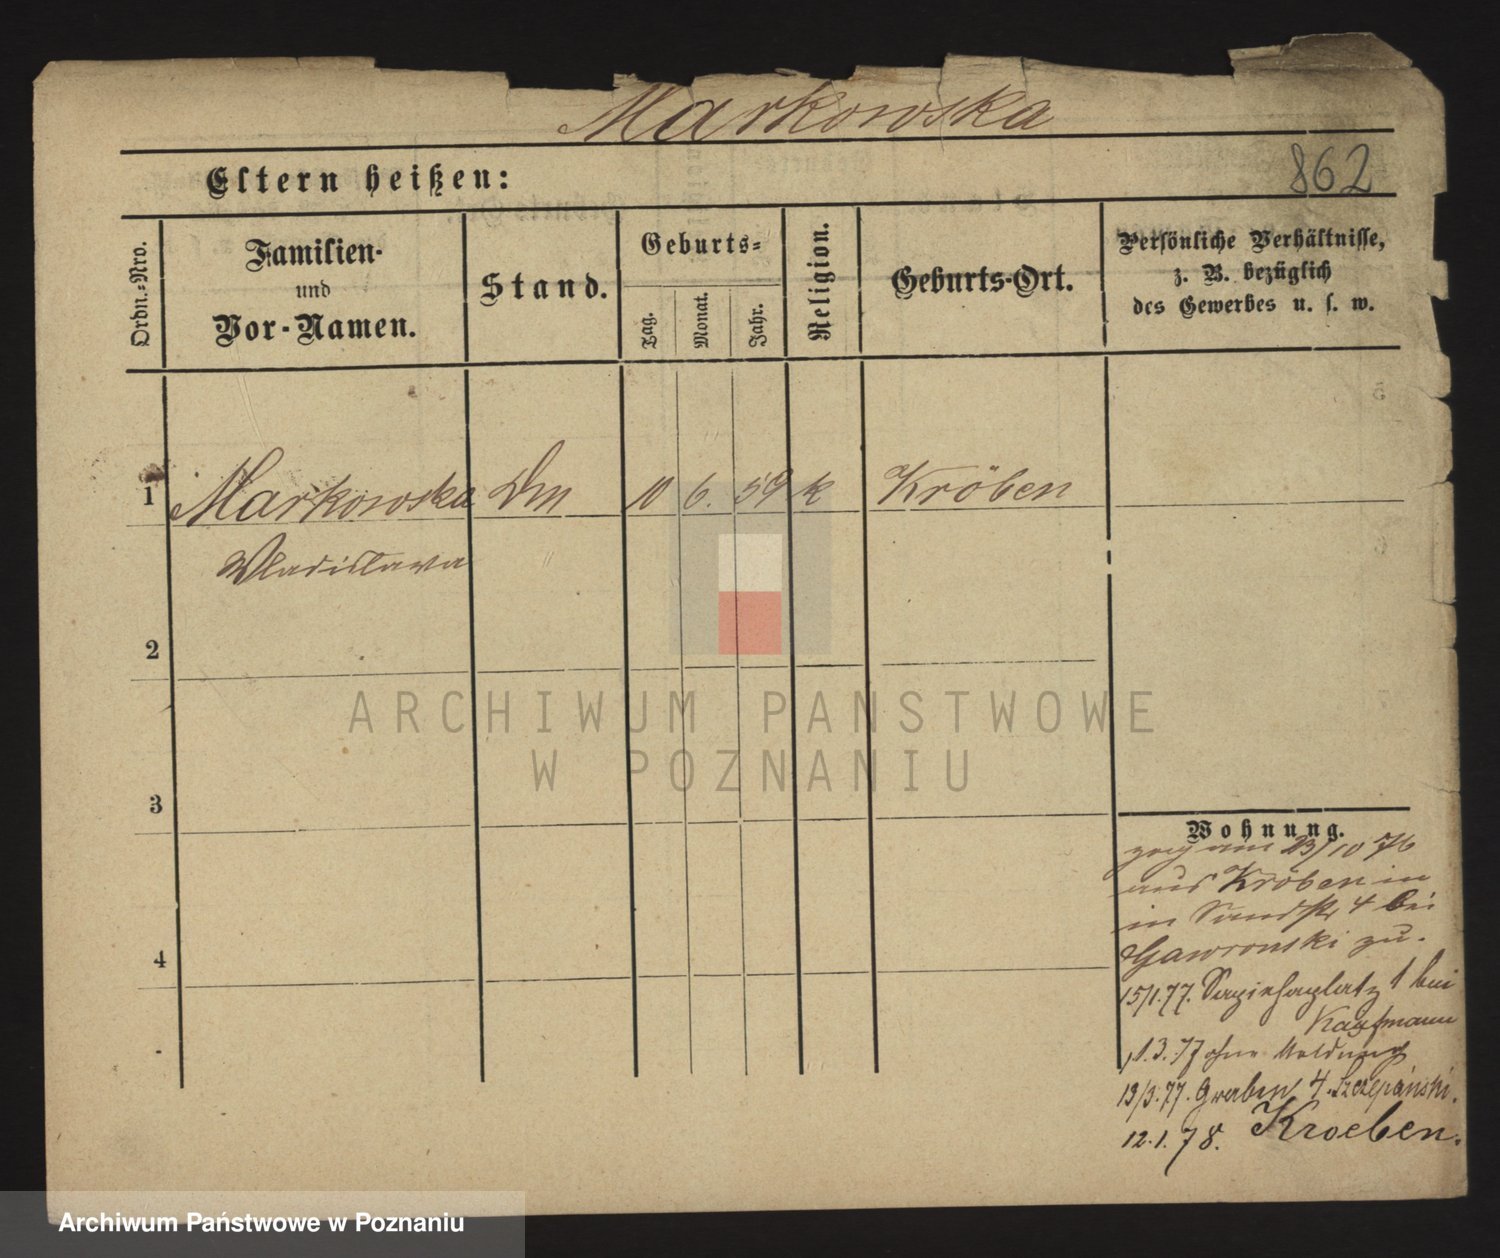 Markowska
Eltern heißen:
862
Ordn.-Nro.
Familien-
und
Vor-Namen.
Stand.
Geburts-
Tag.
Monat.
Jahr.
Religion.
Geburts-Ort.
Persönliche Verhältnisse,
z. B. bezüglich
des Gewerbes u. s. w.
1 Markowska Dm 10 6. 59 k Kröben
Wladislawa
2
3
4
Wohnung.
zog am 23/10 76
aus Kröben in
in Sandstr 4 bei
Gawronski zu.
15/1.77. Sapiehaplatz 1 bei
Kaufmann
1.3.77 ohne Meldung
19/3.77. Graben 4 Szczepański.
12.1.78. Kroeben.
ARCHIWUM PAŃSTWOWE
W POZNANIU
Archiwum Państwowe w Poznaniu